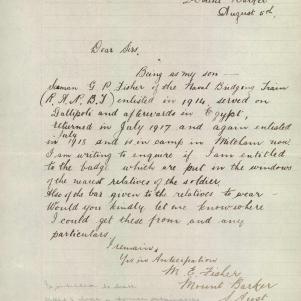 Mount Barker
August 5th.
Dear Sirs.
Being as my son —
Seaman G P Fisher of the Naval Bridging Train
(R. A. N. B. T) enlisted in 1914, served on
Gallipoli and afterwards in Egypt,
returned in July 1917 and again enlisted
July
in 1918 and is in camp in Mitcham now.
I am writing to enquire if I am entitled
to the badge which are put on the windows
of the nearest relatives of the soldier.
Also of the bar given to the relatives to wear —
Would you kindly let me know where
I could get these from and any
particulars.
I remain,
Yrs in Anticipation
M. E. Fisher
Mount Barker